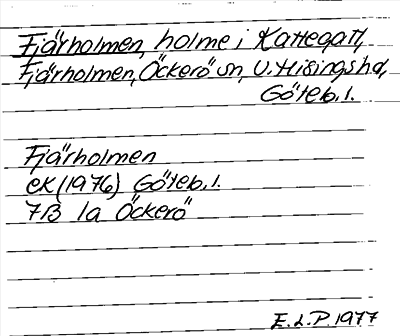 Fjärholmen, holme i Kattegatt,
Fjärholmen, Öckerö sn, V. Hisings hd,
Göteb. l.
Fjärholmen
ek (1976) Göteb. l.
7B 1a Öckerö
E.L.P. 1977